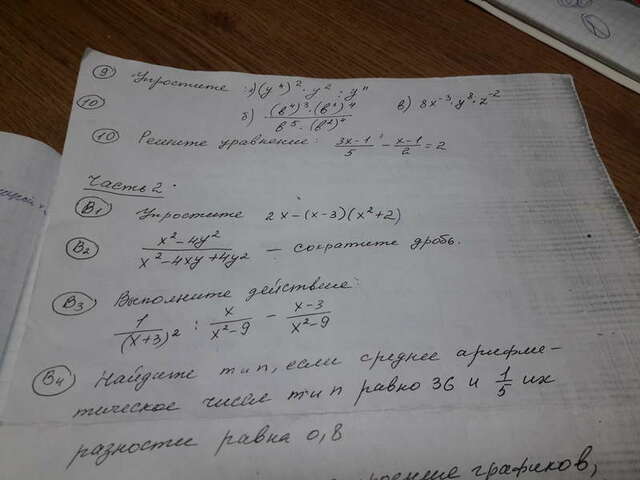 9 Упростите: а) (y⁴)² · y² : y¹¹
10 б) (в⁴)³ · (в²)⁴ / в⁵ · (в²)⁴ в) 8x⁻³ · y⁸ · z⁻²
10 Решите уравнение: (3x-1)/5 - (x-1)/2 = 2
Часть 2
B1 Упростите 2x-(x-3)(x²+2)
B2 (x²-4y²)/(x²-4xy+4y²) — сократите дробь.
B3 Выполните действие:
1/(x+3)² : x/(x²-9) - (x-3)/(x²-9)
B4 Найдите m и n, если среднее арифме-
тическое чисел m и n равно 36 и 1/5 их
разности равна 0,8
графиков,